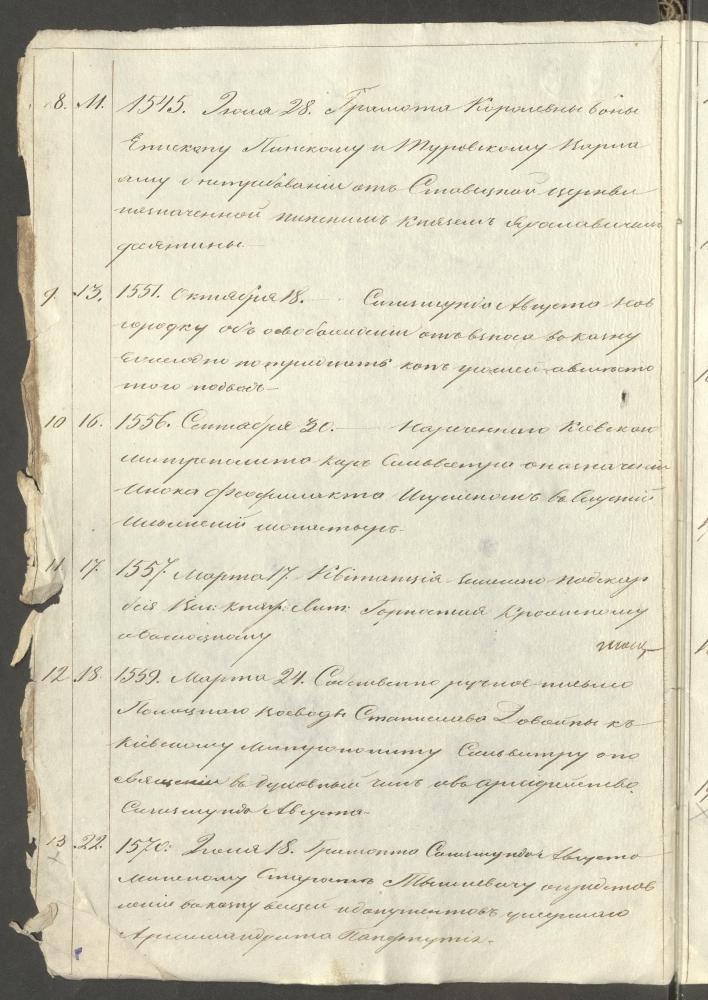 8. 11. 1545. Июля 28. Грамота Королевны Боны
Епископу Пинскому и Туровскому Варла
аму о нетребовании отъ Ставицкой церкви
назначенной пинскимъ Княземъ Ярославичемъ
десятины.
9. 13. 1551. Октября 18. — Сигизмунда Августа Нов
городку объ освобожденіи отъ взноса въ казну
Ежегодно по тридцать копъ грошей
того
10 16. 1556. Сентября 30. — Нареченнаго Кіевскаго
митрополита Сильвестра о назначеніи
инока Феофилакта въ Слуцкій
монастырь.
11. 17. 1557. Марта 17. Квитанція земскаго подскар
бія Вел: Княж: Лит: Горностая Кроанскому
12 18. 1559. Марта 24. Собственно ручное письмо
Полоцкаго воеводы Станислава Довойны къ
Кіевскому митрополиту Сильвестру о по
священіи въ духовный чинъ
Сигизмунда Августа.
13 22. 1570: Июля 18. Грамота Сигизмунда Августа
минскому Старостѣ Тышкевичу о представ
леніи въ казну вещей и документовъ умершаго
Архимандрита Пафнутія.